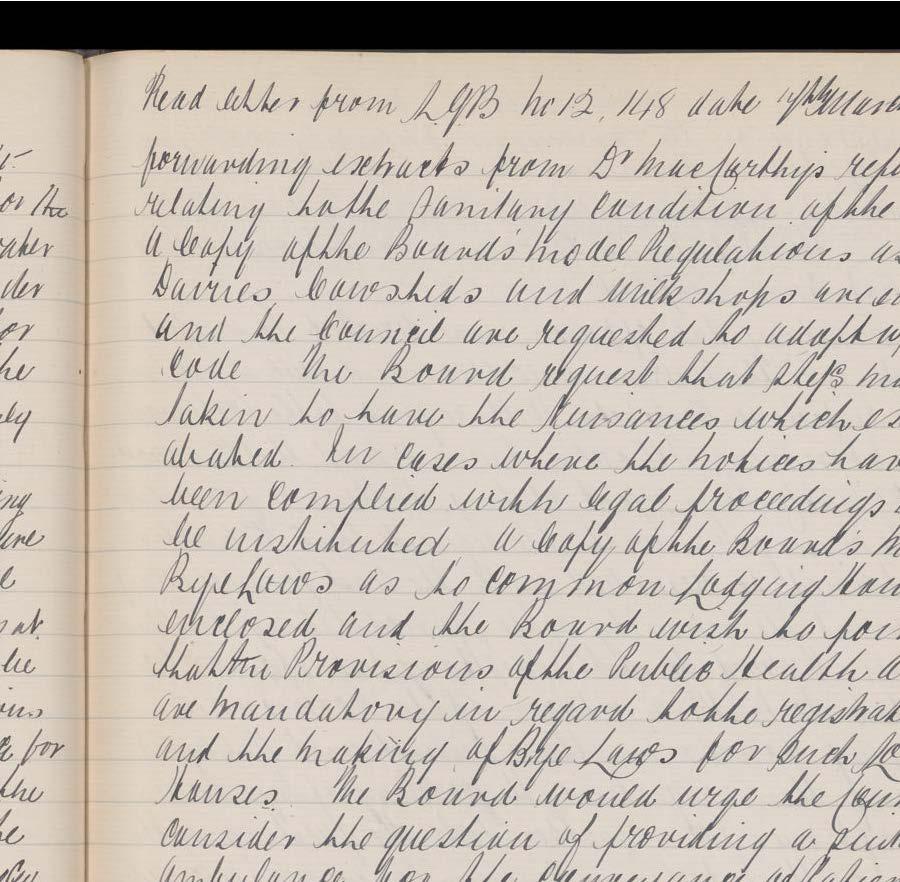 Read letter from LGB No 12,148 date 17th March
forwarding extracts from Dr MacCarthy's
relating to the Sanitary Condition of the
a Copy of the Board's Model Regulations as
Dairies, Cowsheds and Milkshops are
and the Council are requested to adopt
Code The Board request that steps
taken to have the Nuisances which
abated. In cases where the notices have
been complied with legal proceedings
be instituted a Copy of the Board's
Bye Laws as to Common Lodging
enclosed and the Board wish to
that the Provisions of the Public Health
are mandatory in regard to the
and the making of Bye Laws for such
Houses. The Board would urge the
consider the question of providing a
ambulance for the conveyance of
or the
der
or
he
ing
e
at
be
for
the
he